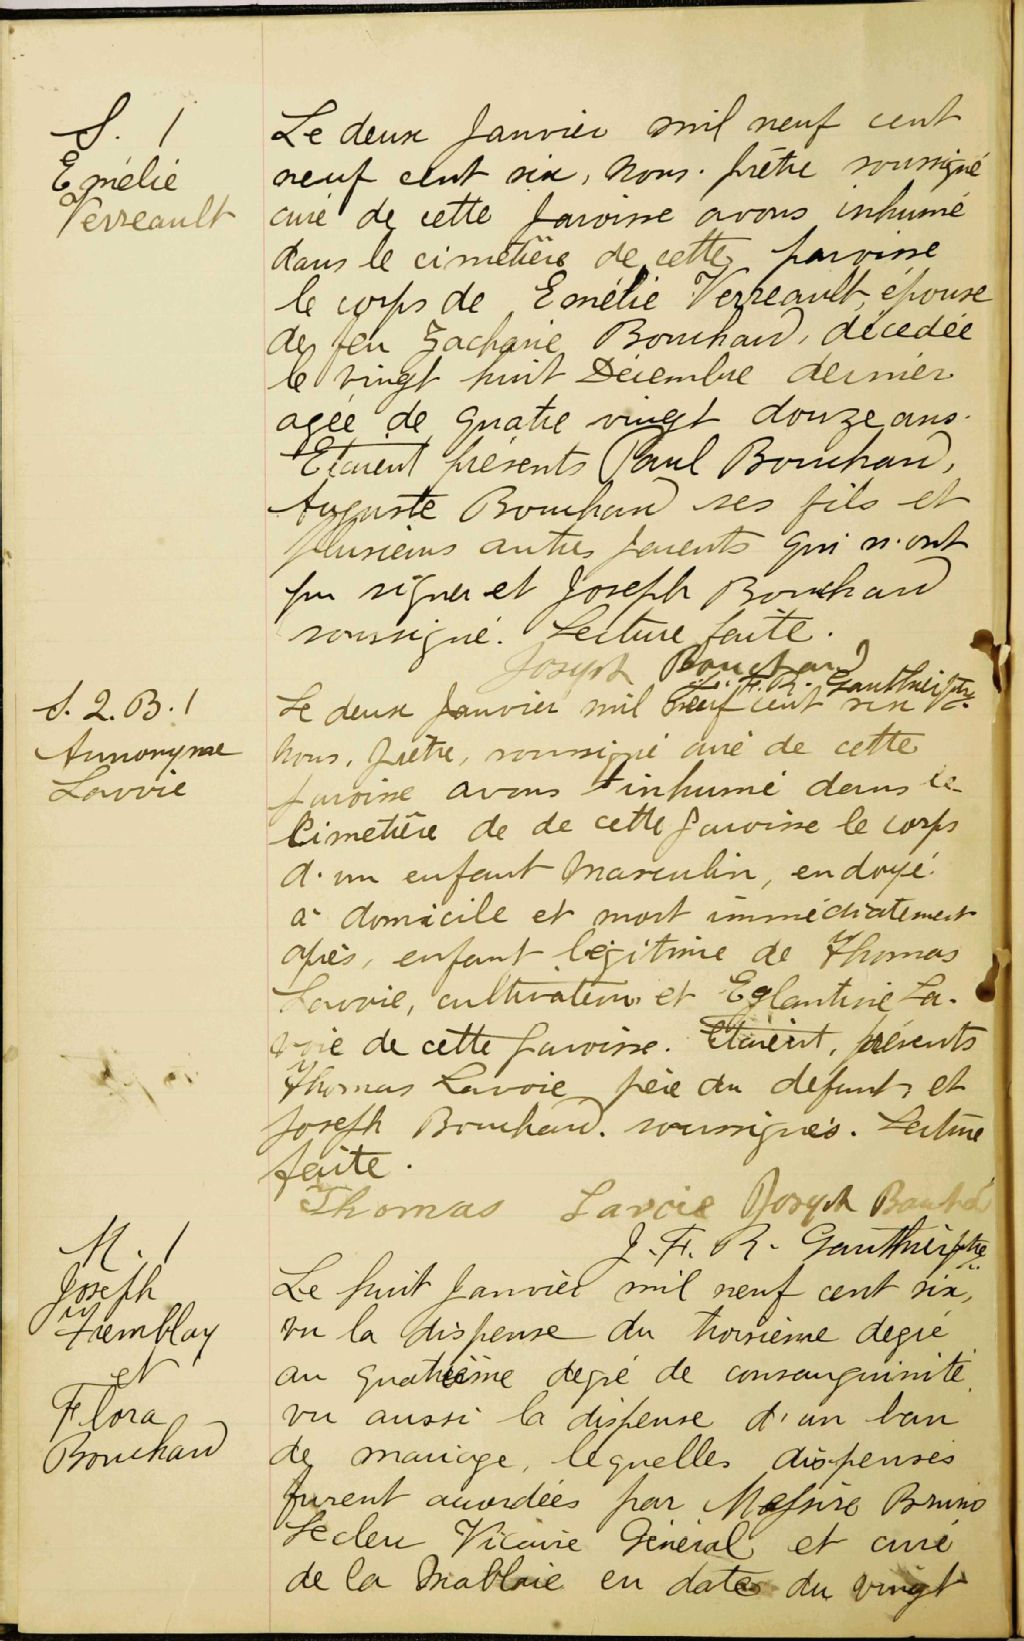 S. 1
Emélie
Verreault
Le deux Janvier mil neuf cent
neuf cent six, nous. prêtre soussigné
curé de cette paroisse avons inhumé
dans le cimetière de cette paroisse
le corps de Emélie Verreault, épouse
de feu Zacharie Bouchard, décédée
le vingt huit Décembre dernier
agée de quatre vingt douze ans.
Etaient présents Paul Bouchard,
Auguste Bouchard ses fils et
plusieurs autres parents qui n'ont
pu signer et Joseph Bouchard
soussigné. Lecture faite.
Joseph Bouchard
J. F. R. Gauthier ptre
S. 2. B. 1
Annonyme
Lavoie
Le deux Janvier mil neuf cent six
nous, prêtre, soussigné curé de cette
paroisse avons inhumé dans le
Cimetière de de cette paroisse le corps
d'un enfant masculin, endoyé
à domicile et mort immédiatement
après, enfant légitime de Thomas
Lavoie, cultivateur et Eglantine La-
voie de cette paroisse. Etaient, présents
Thomas Lavoie père du défunt, et
Joseph Bouchard. soussignés. Lecture
faite.
Thomas Lavoie Joseph
J. F. R. Gauthier ptre
M. 1
Joseph
Tremblay
et
Flora
Bouchard
Le huit Janvier mil neuf cent six,
vu la dispense du troisième degré
au quatrième degré de consanguinité
vu aussi la dispense d'un ban
de mariage, lequelles dispenses
furent accordées par Messire Bruno
Leclerc Vicaire Général et curé
de la Malbaie en date du vingt